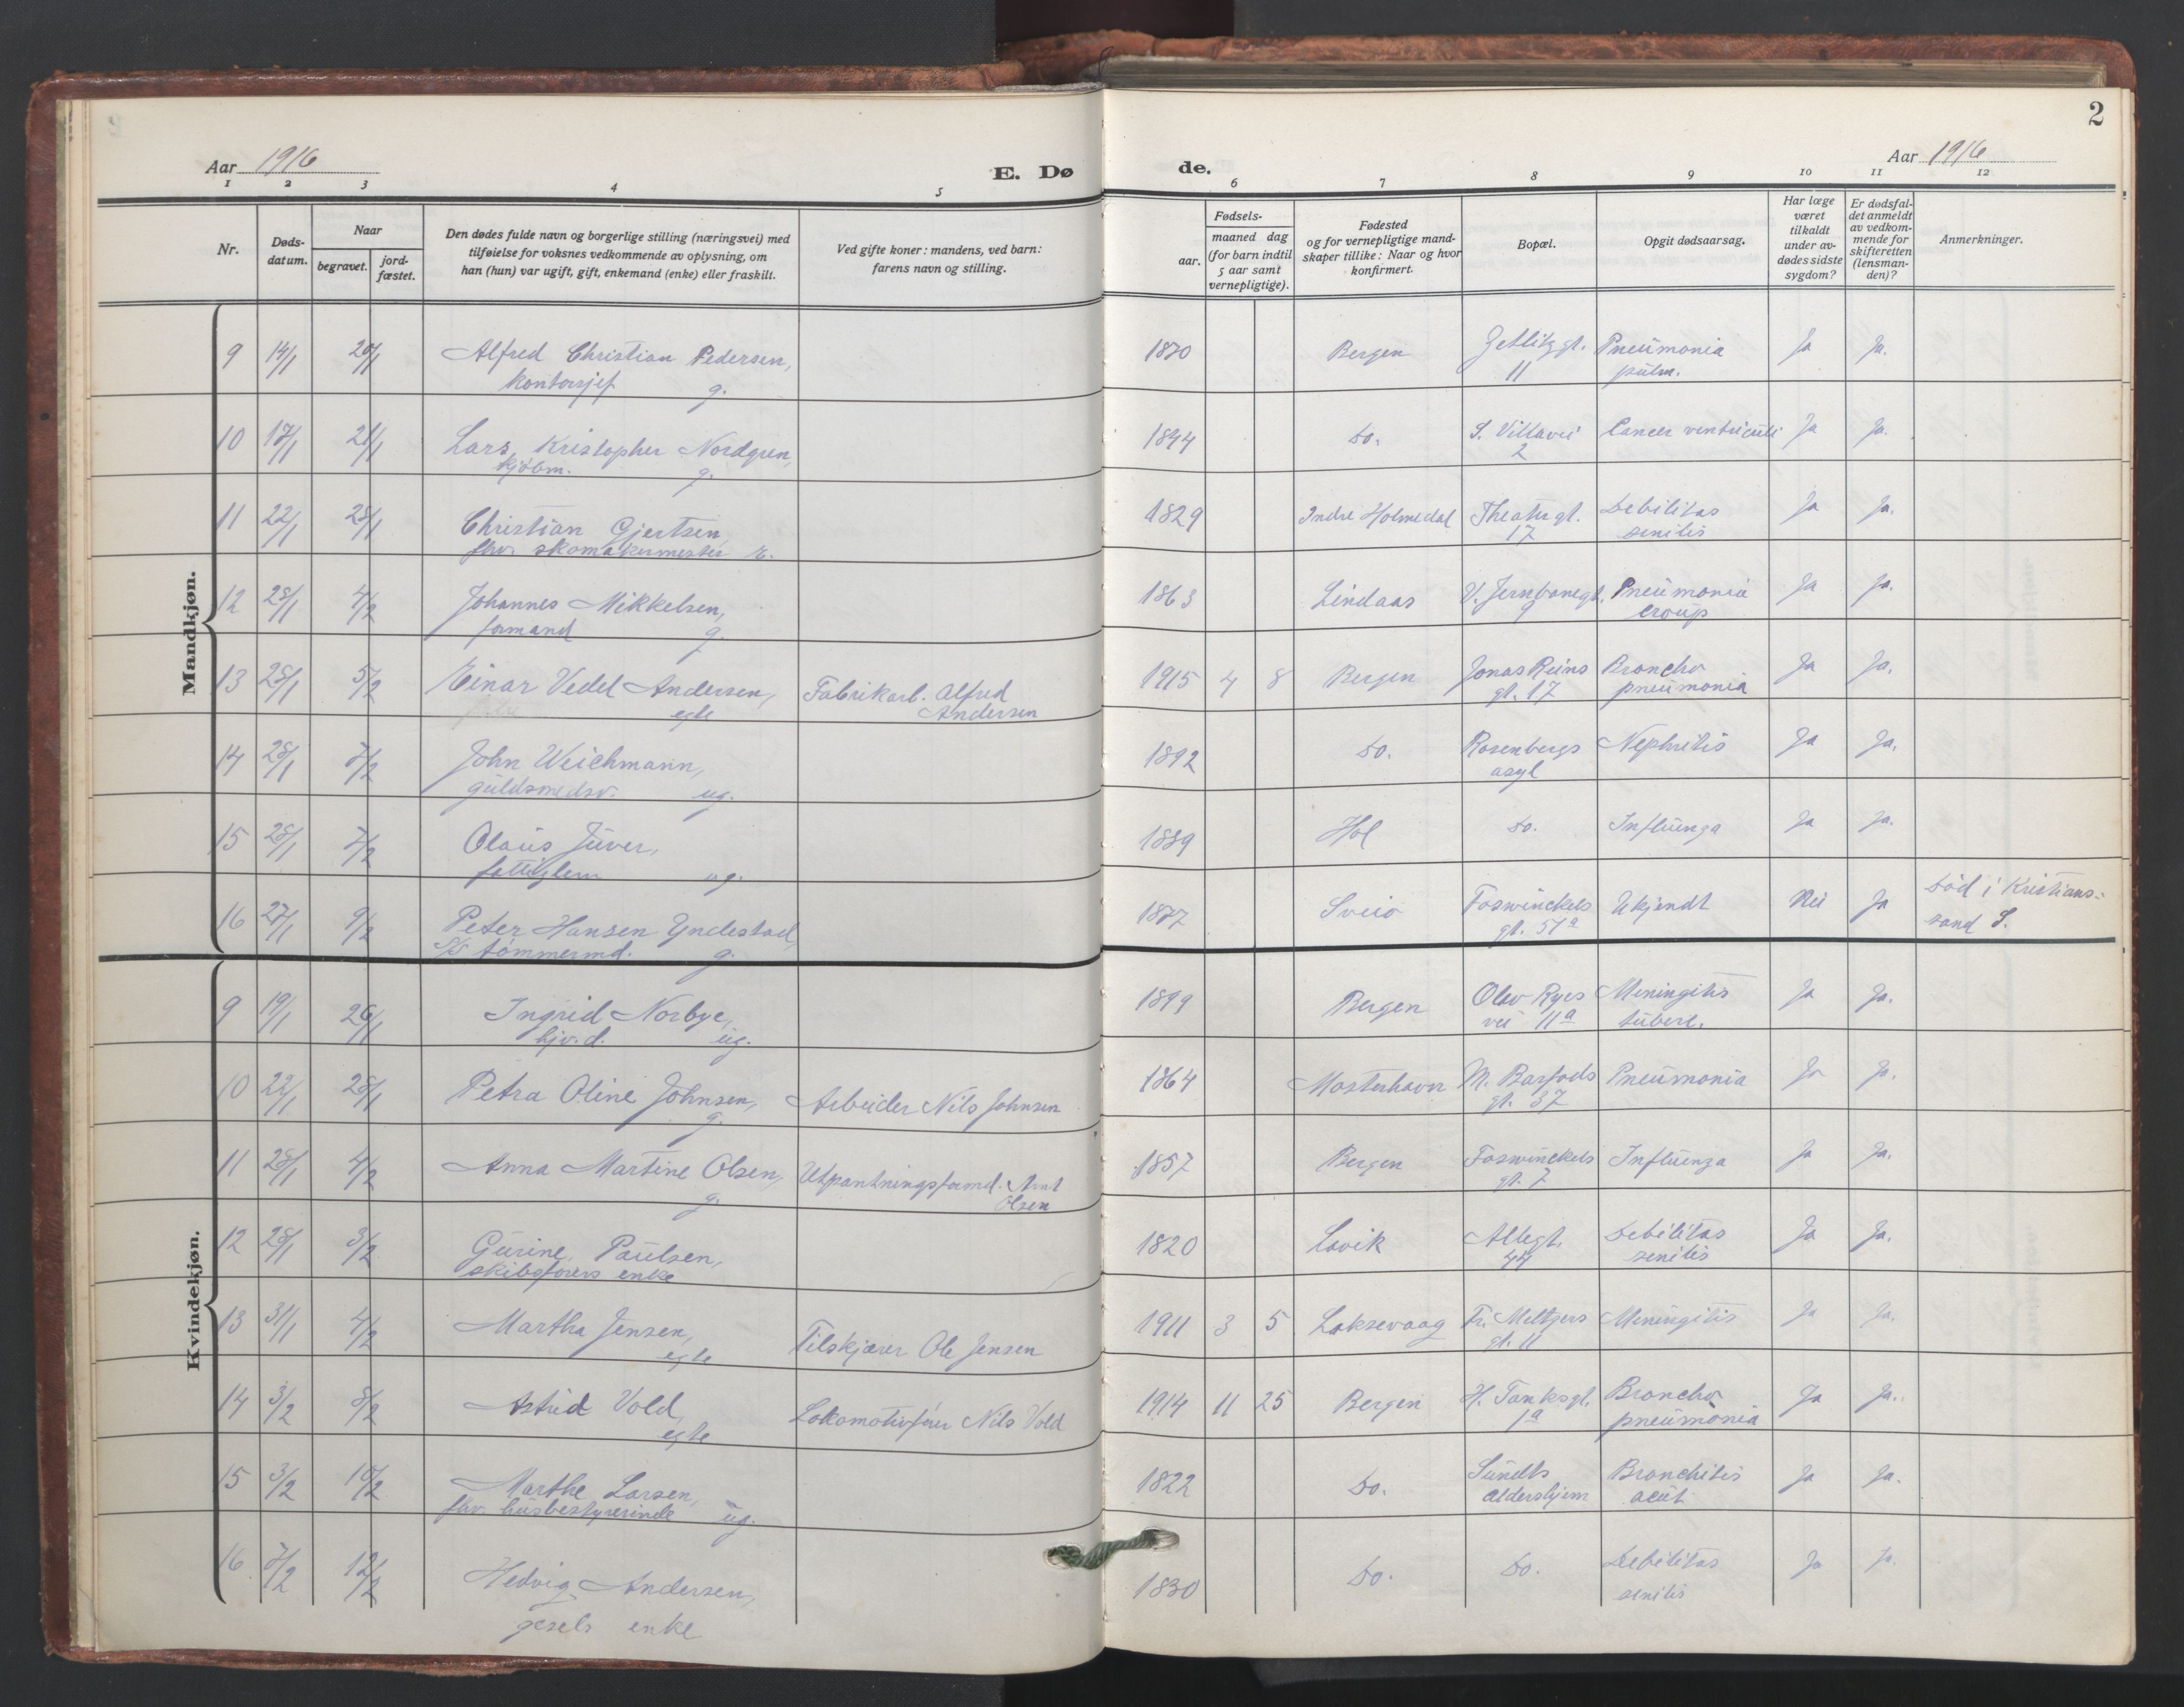 2
Aar 1916
E. Dø
de.
Aar 1916
1 2 3 4 5 6 7 8 9 10 11 12
Nr.
Døds-
datum.
Naar
begravet.
jord-
fæstet.
Den dødes fulde navn og borgerlige stilling (næringsvei) med
tilføielse for voksnes vedkommende av oplysning, om
han (hun) var ugift, gift, enkemand (enke) eller fraskilt.
Ved gifte koner: mandens, ved barn:
farens navn og stilling.
Fødsels-
aar.
maaned dag
(for barn indtil
5 aar samt
vernepligtige).
Fødested
og for vernepligtige mand-
skaper tillike: Naar og hvor
konfirmert.
Bopæl.
Opgit dødsaarsag.
Har læge
været
tilkaldt
under av-
dødes sidste
sygdom?
Er dødsfal-
det anmeldt
av vedkom-
mende for
skifteretten
(lensman-
den)?
Anmerkninger.
Mandkjøn.
9 14/1 20/1 Alfred Christian Pedersen, 1870 Bergen Zetlitzgt. Pneumonia Ja Ja.
kontorsjef g. 11 pulm.
10 17/1 21/1 Lars Kristopher Nordgren, 1844 Do. S. Villavei Cancer ventriculi Ja Ja.
kjøbm. g. 2
11 22/1 28/1 Christian Gjertsen 1829 Indre Holmedal Theatergt. Debilitas Ja Ja.
fhv. skomakermester E. 17 senilis
12 28/1 4/2 Johannes Mikkelsen, 1863 Lindaas V. Jernbanegt. Pneumonia Ja Ja.
formand g. 9 croup
13 28/1 5/2 Einar Vedel Andersen, Fabrikarb. Alfred 1915 4 8 Bergen Jonas Reins Broncho Ja Ja.
egte Andersen gt. 17 pneumonia
14 28/1 7/2 John Weichmann, 1892 Do. Rosenbergs Nephritis Ja Ja.
guldsmedsv. ug. asyl
15 28/1 7/2 Olaus Juver, 1889 Hol Do. Influenza Ja Ja.
fattiglem ug.
16 27/1 9/2 Peter Hansen Yndestad, 1877 Sveio Foswinckels Ukjendt Nei Ja Død i Kristians-
S/S tømmermd. g. gt. 57a sand S.
Kvindekjøn.
9 19/1 26/1 Ingrid Norbye, 1899 Bergen Olav Ryes Meningitis Ja Ja.
hjv. d. ug. vei 11a tuberc.
10 22/1 28/1 Petra Oline Johnsen, Arbeider Nils Johnsen 1864 Mosterhavn M. Barfods Pneumonia Ja Ja.
g. gt. 37
11 28/1 4/2 Anna Martine Olsen, Utpantningsformd. Arnt 1857 Bergen Foswinckels Influenza Ja Ja.
g. Olsen gt. 7
12 28/1 3/2 Gurine Paulsen, 1820 Lavik Allegt. Debilitas Ja Ja.
skibsførers enke 44 senilis
13 31/1 4/2 Martha Jensen, Tilskjærer Ole Jensen 1911 3 5 Laksevaag Fr. Meltzers Meningitis Ja Ja.
egte gt. 11
14 3/2 8/2 Astrid Vold, Lokomotivfører Nils Vold 1914 11 25 Bergen H. Tanksgt. Broncho Ja Ja.
egte 1a pneumonia
15 3/2 10/2 Marthe Larsen, 1822 Do. Sundts Bronchitis Ja Ja.
fhv. husbestyrerinde ug. aldershjem acut
16 7/2 12/2 Hedvig Andersen, 1830 Do. Do. Debilitas Ja Ja.
gesels enke senilis